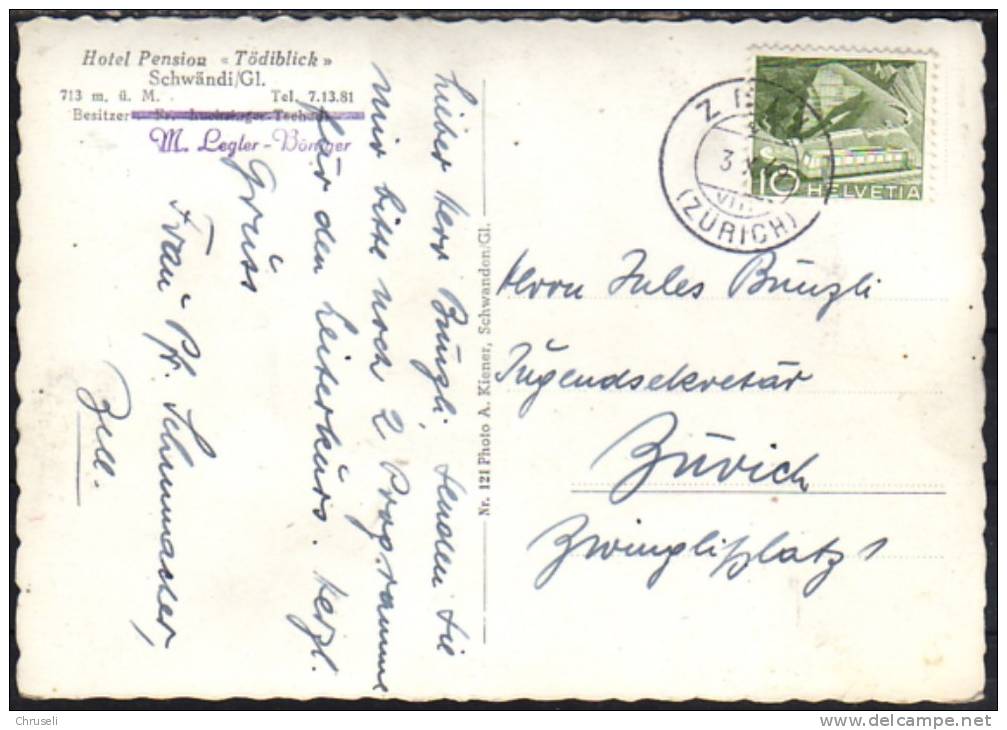 Hotel Pension «Tödiblick»
Schwändi/Gl.
713 m. ü. M. Tel. 7.13.81
Besitzer
M. Legler-Böniger
Lieber Herr Bünzli, senden Sie
mir bitte noch 2 Programme
für den Leiterkurs. Herzl.
Grüss
Frau Pfr. Schumacher,
Zell.
Nr. 121 Photo A. Kiener, Schwanden/Gl.
10 HELVETIA
(ZÜRICH)
Herrn Jules Bünzli
Jugendsekretär
Zürich
Zwinglisplatz 1
Chruseli
www.delcampe.net